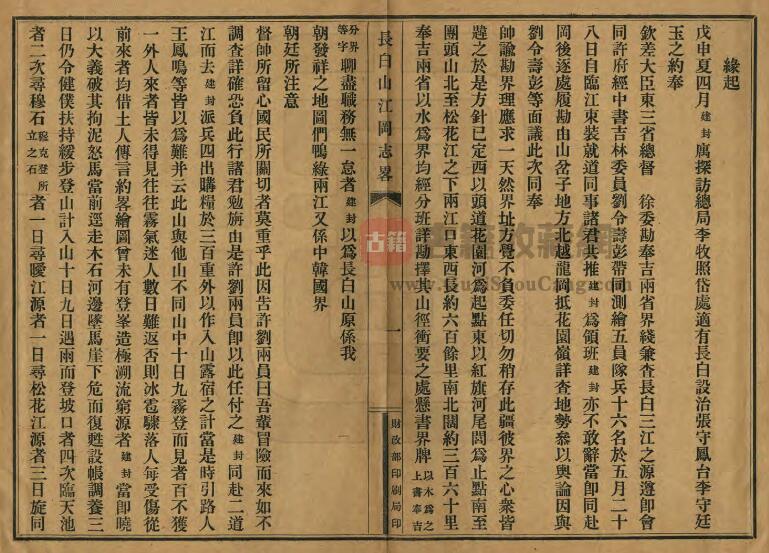 緣起
戊申夏四月建封廁探訪總局李牧照岱處適有長白設治張守鳳台李守廷
玉之約奉
欽差大臣東三省總督　徐委勘奉吉兩省界綫兼查長白三江之源遵卽會
同許府經中書吉林委員劉令壽彭帶同測繪五員隊兵十六名於五月二十
八日自臨江束裝就道同事諸君共推建封爲領班建封亦不敢辭當卽同赴
岡後逐處履勘由山岔子地方北越龍岡抵花園嶺詳查地勢參以輿論因與
劉令壽彭等面議此次同奉
帥諭勘界理應求一天然界址方覺不負委任切勿稍存此疆彼界之心衆皆
韙之於是方針已定西以頭道花園河爲起點東以紅旗河尾閭爲止點南至
團頭山北至松花江之下兩江口東西長約六百餘里南北闊約三百六十里
奉吉兩省以水爲界均經分班詳勘擇其山徑衝要之處懸書界牌以木爲之上書奉吉
長白山江岡志畧
一
財政部印刷局印
分界等字聊盡職務無一怠者建封以爲長白山原係我
朝發祥之地圖們鴨綠兩江又係中韓國界
朝廷所注意
督帥所留心國民所關切者莫重乎此因告許劉兩員曰吾輩冒險而來如不
調查詳確恐負此行諸君勉旃由是許劉兩員卽以此任付之建封同赴二道
江而去建封派兵四出購糧於三百重外以作入山露宿之計當是時引路人
王鳳鳴等皆以爲難并云此山與他山不同山中十日九霧登而見者百不獲
一外人來者皆未得見往往霧氣迷人數日難返否則冰雹驟落人每受傷從
前來者均借土人傳言約畧繪圖曾未有登峯造極溯流窮源者建封當卽曉
以大義破其拘泥怒馬當前逕走木石河邊墜馬崖下危而復甦設帳調養三
日仍令健僕扶持緩步登山計入山十日九遇雨而登坡口者四次臨天池
者二次尋穆石穆克登所立之石者一日尋曖江源者一日尋松花江源者三日旋同